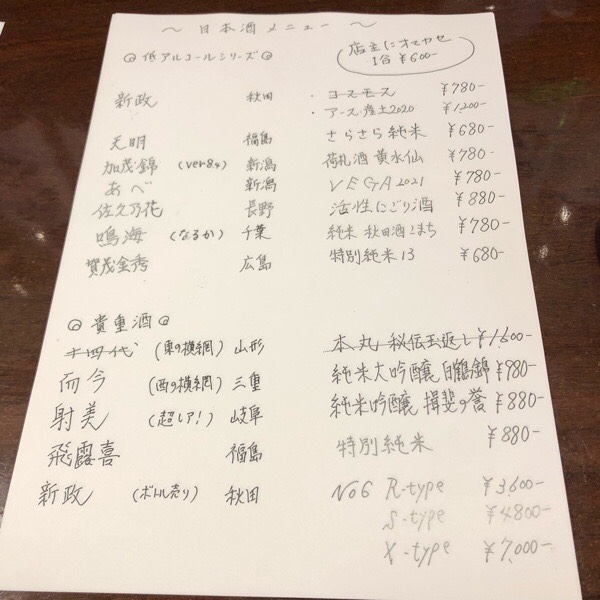 ～ 日本酒メニュー ～
◎ 低アルコールシリーズ ◎
店主にオマカセ
1合 ¥600-
新政 秋田 ・コスモス ¥780-
・アース・産土2020 ¥1,200-
天明 福島 さらさら純米 ¥680-
加茂錦 (ver8々) 新潟 荷札酒 黄水仙 ¥780-
あべ 新潟 VEGA 2021 ¥780-
佐久乃花 長野 活性にごり酒 ¥880-
鳴海 (なるか) 千葉 純米 秋田酒こまち ¥780-
賀茂金秀 広島 特別純米13 ¥680-
◎ 貴重酒 ◎
十四代 (東の横綱) 山形 本丸 秘伝玉返し ¥1,600-
而今 (西の横綱) 三重 純米大吟醸 白鶴錦 ¥980-
射美 (超レア!) 岐阜 純米吟醸 揖斐の誉 ¥880-
飛露喜 福島 特別純米 ¥880-
新政 (ボトル売り) 秋田 No6 R-type ¥3,600-
S-type ¥4,800-
X-type ¥7,000-